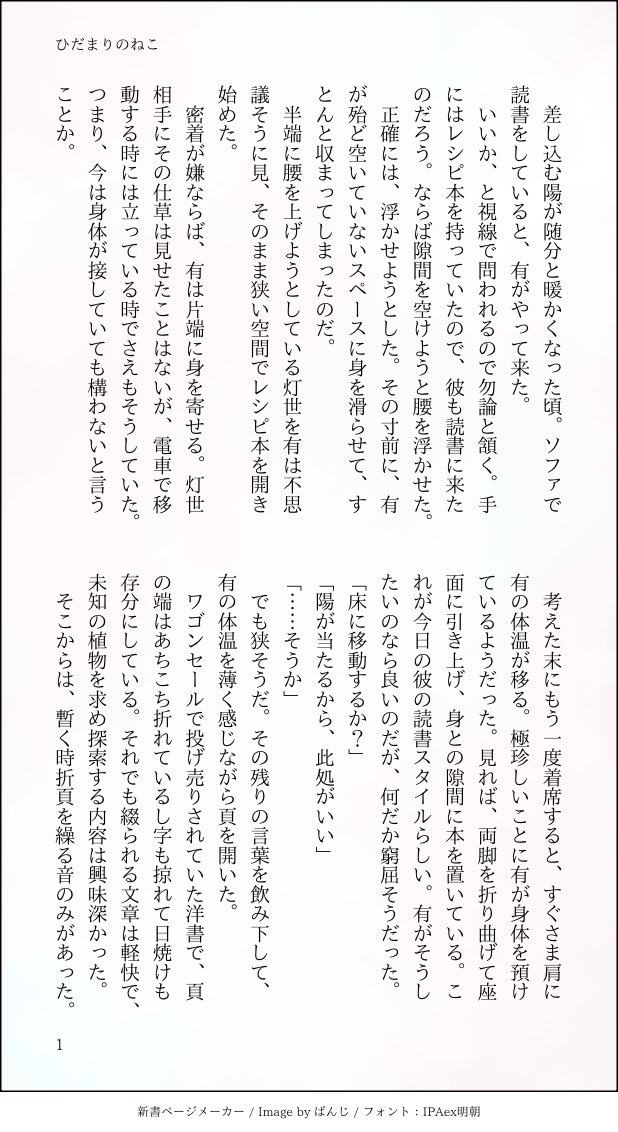 ひだまりのねこ
　差し込む陽が随分と暖かくなった頃。ソファで
読書をしていると、有がやって来た。
　いいか、と視線で問われるので勿論と頷く。手
にはレシピ本を持っていたので、彼も読書に来た
のだろう。ならば隙間を空けようと腰を浮かせた。
　正確には、浮かせようとした。その寸前に、有
が殆ど空いていないスペースに身を滑らせて、す
とんと収まってしまったのだ。
　半端に腰を上げようとしている灯世を有は不思
議そうに見、そのまま狭い空間でレシピ本を開き
始めた。
　密着が嫌ならば、有は片端に身を寄せる。灯世
相手にその仕草は見せたことはないが、電車で移
動する時には立っている時でさえもそうしていた。
つまり、今は身体が接していても構わないと言う
ことか。
　考えた末にもう一度着席すると、すぐさま肩に
有の体温が移る。極珍しいことに有が身体を預け
ているようだった。見れば、両脚を折り曲げて座
面に引き上げ、身との隙間に本を置いている。こ
れが今日の彼の読書スタイルらしい。有がそうし
たいのなら良いのだが、何だか窮屈そうだった。
「床に移動するか？」
「陽が当たるから、此処がいい」
「……そうか」
　でも狭そうだ。その残りの言葉を飲み下して、
有の体温を薄く感じながら頁を開いた。
　ワゴンセールで投げ売りされていた洋書で、頁
の端はあちこち折れているし字も掠れて日焼けも
存分にしている。それでも綴られる文章は軽快で、
未知の植物を求め探索する内容は興味深かった。
　そこからは、暫く時折頁を繰る音のみがあった。
1
新書ページメーカー / Image by ぱんじ / フォント：IPAex明朝